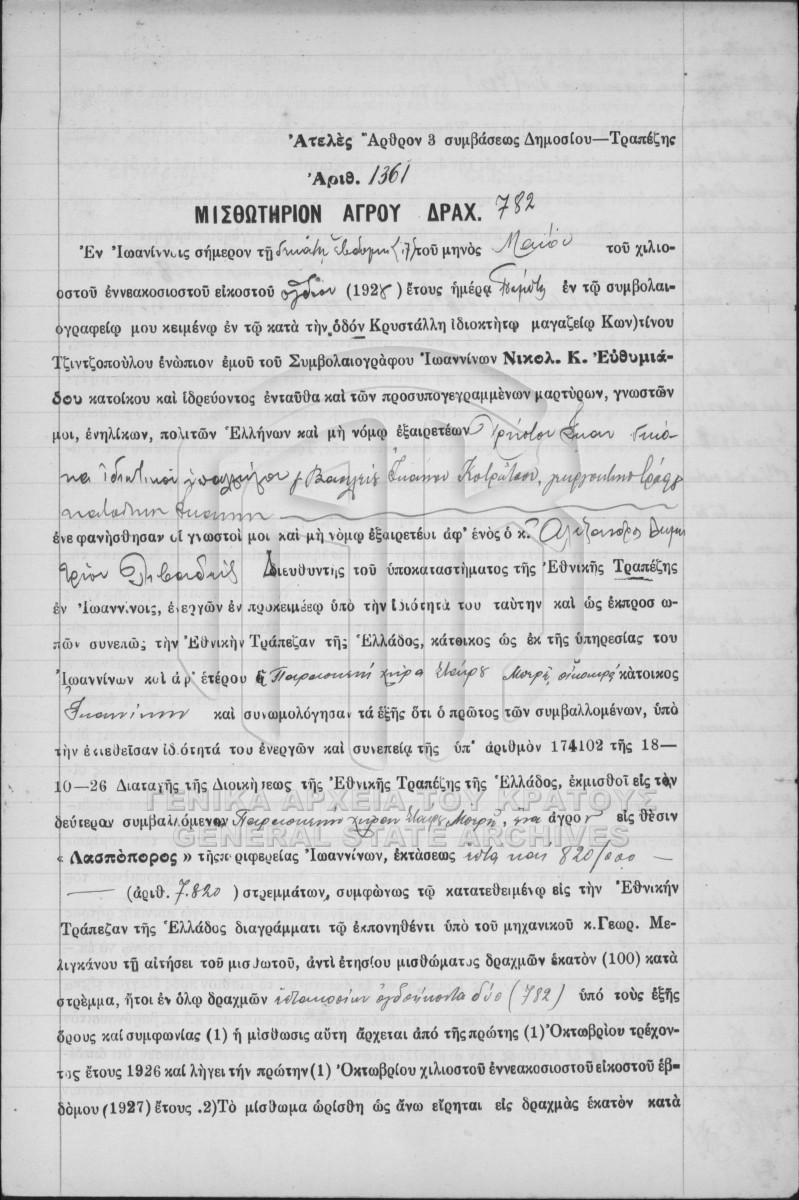 Ἀτελὲς Ἄρθρον 3 συμβάσεως Δημοσίου—Τραπέζης
Ἀριθ. 1361
ΜΙΣΘΩΤΗΡΙΟΝ ΑΓΡΟΥ ΔΡΑΧ. 782
Ἐν Ἰωαννίνοις σήμερον τῇ δεκάτη ἑβδόμη τοῦ μηνὸς Μαΐου τοῦ χιλιο-
οστοῦ ἐννεακοσιοστοῦ εἰκοστοῦ ὀγδόου (1928) ἔτους ἡμέρᾳ Πέμπτη ἐν τῷ συμβολαι-
ογραφείῳ μου κειμένῳ ἐν τῷ κατὰ τὴν ὁδόν Κρυστάλλη ἰδιοκτήτῳ μαγαζείῳ Κων)τίνου
Τζιντζοπούλου ἐνώπιον ἐμοῦ τοῦ Συμβολαιογράφου Ἰωαννίνων Νικολ. Κ. Εὐθυμιά-
δου κατοίκου καὶ ἱδρεύοντος ἐνταῦθα καὶ τῶν προσυπογεγραμμένων μαρτύρων, γνωστῶν
μοι, ἐνηλίκων, πολιτῶν Ἑλλήνων καὶ μὴ νόμῳ ἐξαιρετέων Χρήστου Ἰωαν.
ἰδιωτικοῦ ὑπαλλήλου Βασιλείου Ἰωάννου
κατοίκων Ἰωαννίνων
ἐνεφανήσθησαν οἱ γνωστοί μοι καὶ μὴ νόμῳ ἐξαιρετέοι ἀφ' ἑνὸς ὁ κ. Ἀλέξανδρος Δημη
τρίου Λεβαδεὺς Διευθυντὴς τοῦ ὑποκαταστήματος τῆς Ἐθνικῆς Τραπέζης
ἐν Ἰωαννίνοις, ἐνεργῶν ἐν προκειμέῳ ὑπὸ τὴν ἰδιότητά του ταύτην καὶ ὡς ἐκπροσω-
πῶν συνεπῶς τὴν Ἐθνικὴν Τράπεζαν τῆς Ἑλλάδος, κάτοικος ὡς ἐκ τῆς ὑπηρεσίας του
Ἰωαννίνων καὶ ἀφ' ἑτέρου ἡ Παρασκευὴ χήρα Σταύρου κάτοικος
Ἰωαννίνων καὶ συνωμολόγησαν τὰ ἑξῆς ὅτι ὁ πρῶτος τῶν συμβαλλομένων, ὑπὸ
τὴν ἐκτεθεῖσαν ἰδιότητά του ἐνεργῶν καὶ συνεπείᾳ τῆς ὑπ' ἀριθμὸν 174102 τῆς 18—
10—26 Διαταγῆς τῆς Διοικήσεως τῆς Ἐθνικῆς Τραπέζης τῆς Ἑλλάδος, ἐκμισθοῖ εἰς τὸν
ΓΕΝΙΚΑ ΑΡΧΕΙΑ ΤΟΥ ΚΡΑΤΟΥΣ
δεύτερον συμβαλλόμενον Παρασκευὴν χήραν Σταύρου ἕνα ἀγρον εἰς θέσιν
GENERAL STATE ARCHIVES
« Λασπόπορος » τῆς περιφερείας Ἰωαννίνων, ἐκτάσεως ἑπτὰ καὶ 820/000 —
— (ἀριθ. 7.820) στρεμμάτων, συμφώνως τῷ κατατεθειμένῳ εἰς τὴν Ἐθνικήν
Τράπεζαν τῆς Ἑλλάδος διαγράμματι τῷ ἐκπονηθέντι ὑπὸ τοῦ μηχανικοῦ κ. Γεωρ. Με-
λιγκάνου τῇ αἰτήσει τοῦ μισθωτοῦ, ἀντὶ ἐτησίου μισθώματος δραχμῶν ἑκατὸν (100) κατὰ
στρέμμα, ἤτοι ἐν ὅλῳ δραχμῶν ἑπτακοσίων ὀγδοήκοντα δύο (782) ὑπό τοὺς ἑξῆς
ὅρους καί συμφωνίας (1) ἡ μίσθωσις αὕτη ἄρχεται ἀπό τῆς πρώτης (1) Ὀκτωβρίου τρέχον-
τος ἔτους 1926 καί λήγει τήν πρώτην (1) Ὀκτωβρίου χιλιοστοῦ ἐννεακοσιοστοῦ εἰκοστοῦ ἑβ-
δόμου (1927) ἔτους .2)Τὸ μίσθωμα ὡρίσθη ὡς ἄνω εἴρηται εἰς δραχμὰς ἑκατὸν κατὰ